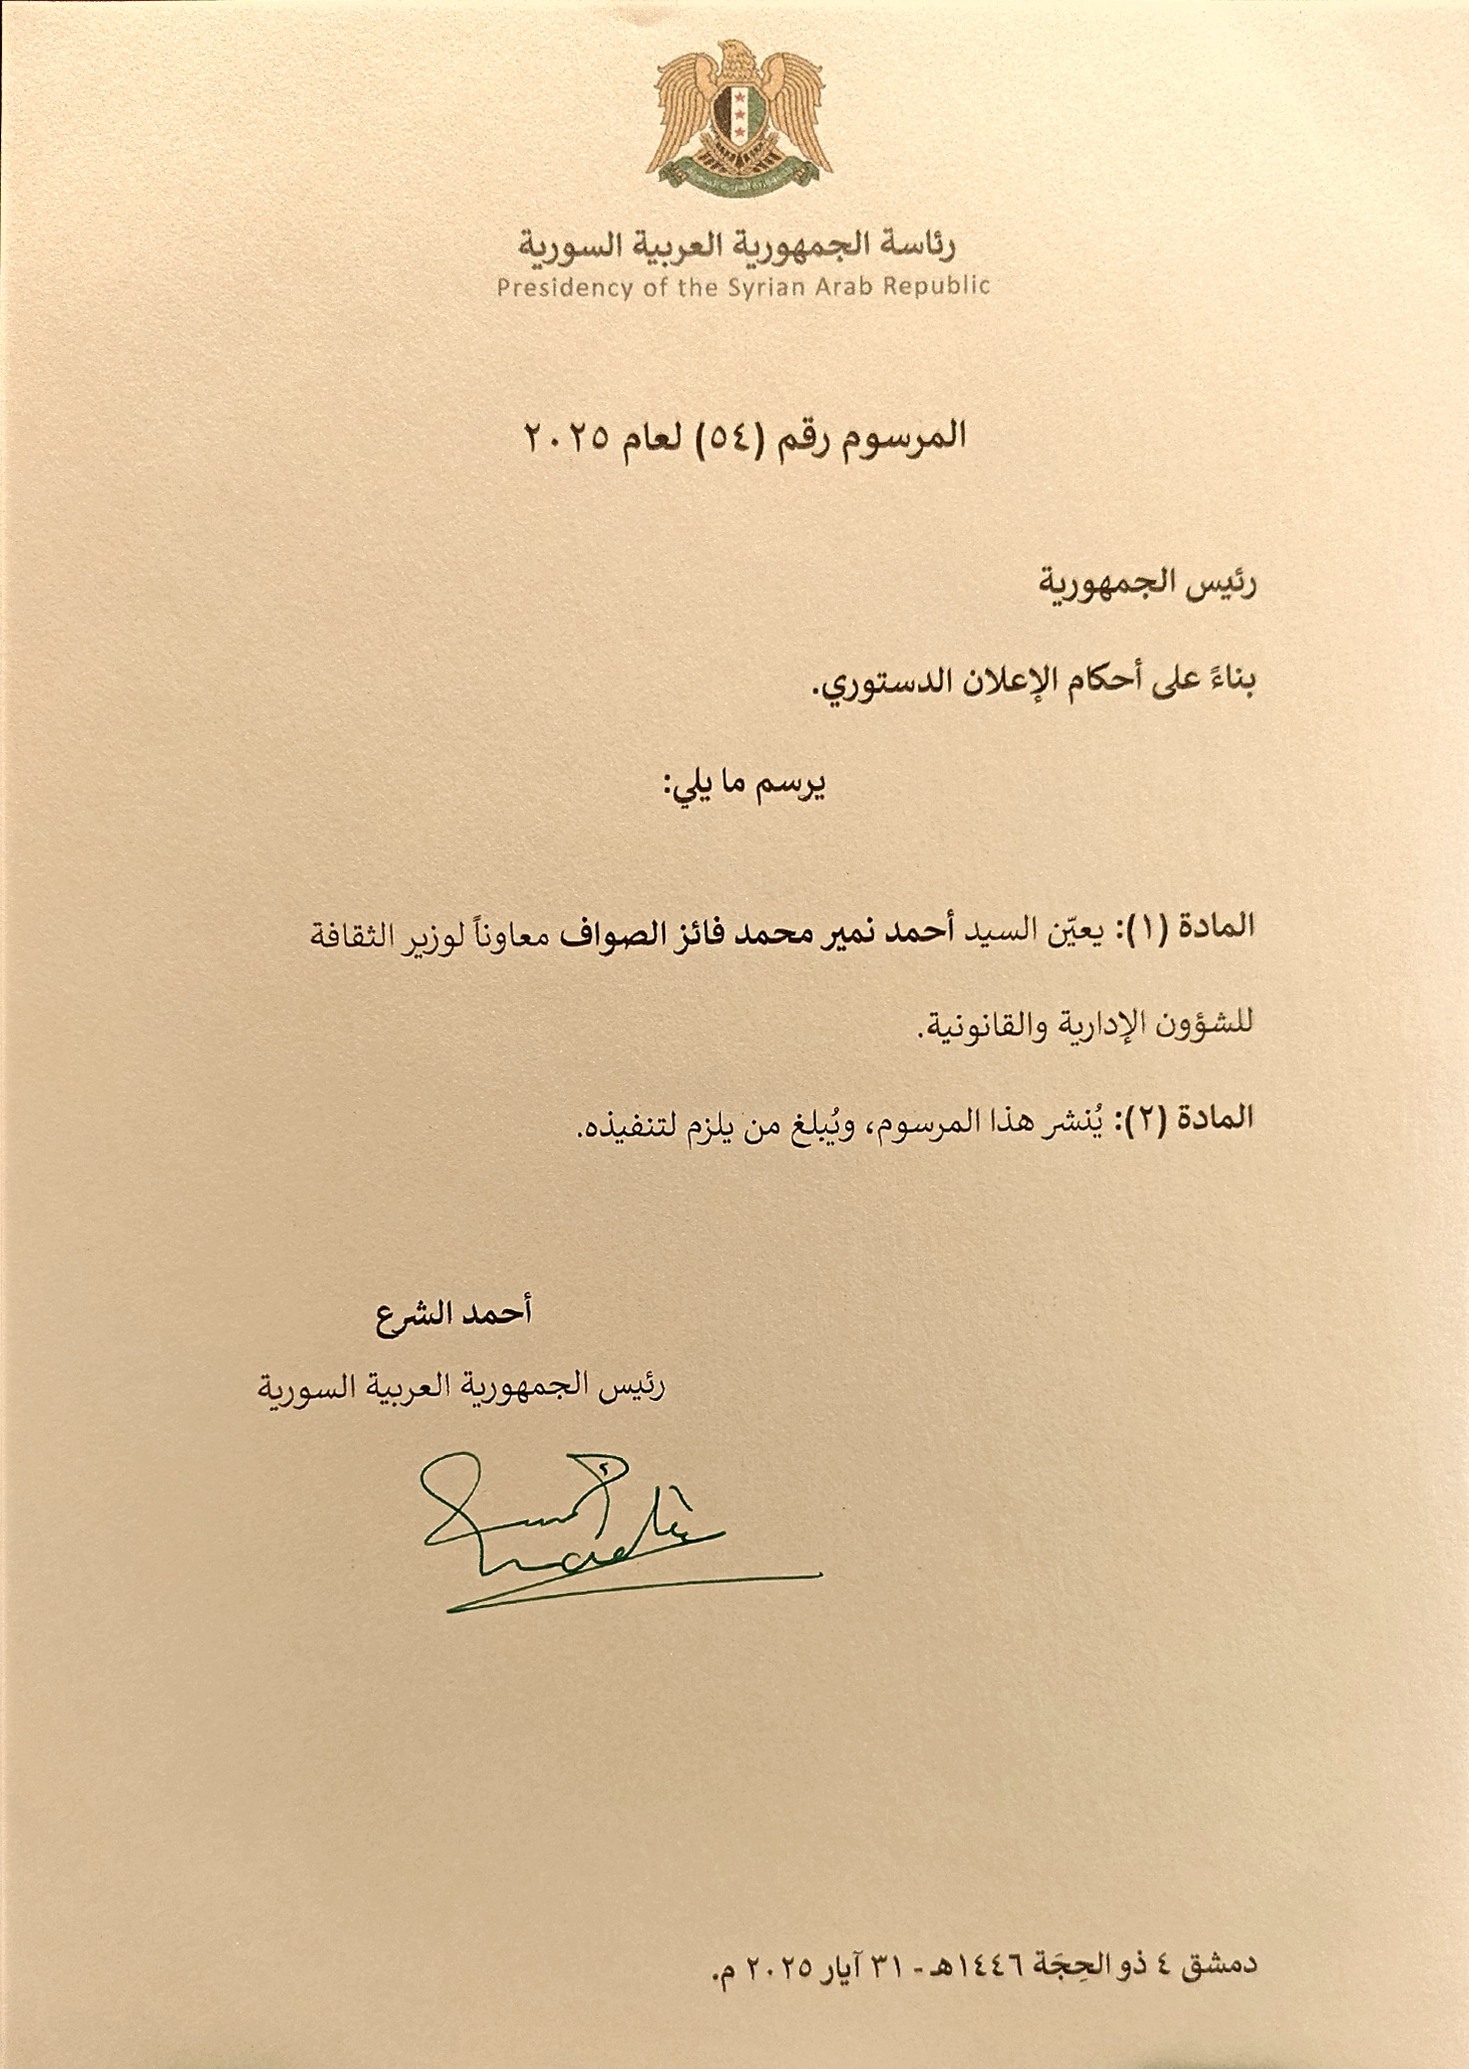 رئاسة الجمهورية العربية السورية
Presidency of the Syrian Arab Republic
المرسوم رقم (٥٤) لعام ٢٠٢٥
رئيس الجمهورية
بناءً على أحكام الإعلان الدستوري.
يرسم ما يلي:
المادة (١): يعيّن السيد أحمد نمير محمد فائز الصواف معاوناً لوزير الثقافة
للشؤون الإدارية والقانونية.
المادة (٢): يُنشر هذا المرسوم، ويُبلغ من يلزم لتنفيذه.
أحمد الشرع
رئيس الجمهورية العربية السورية
دمشق ٤ ذو الحِجَة ١٤٤٦هـ - ٣١ آيار ٢٠٢٥ م.